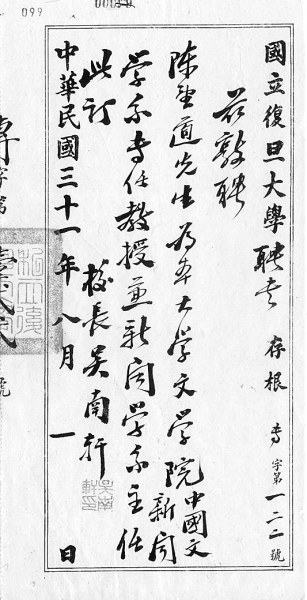 099
國立復旦大學聘書 存根 專字第一二二號
茲敦聘
陳望道先生為本大學文學院中國文新聞
學系專任教授並新聞學系主任
此訂
校長吳南軒
吳南軒印
中華民國三十一年八月一日
專字第
號